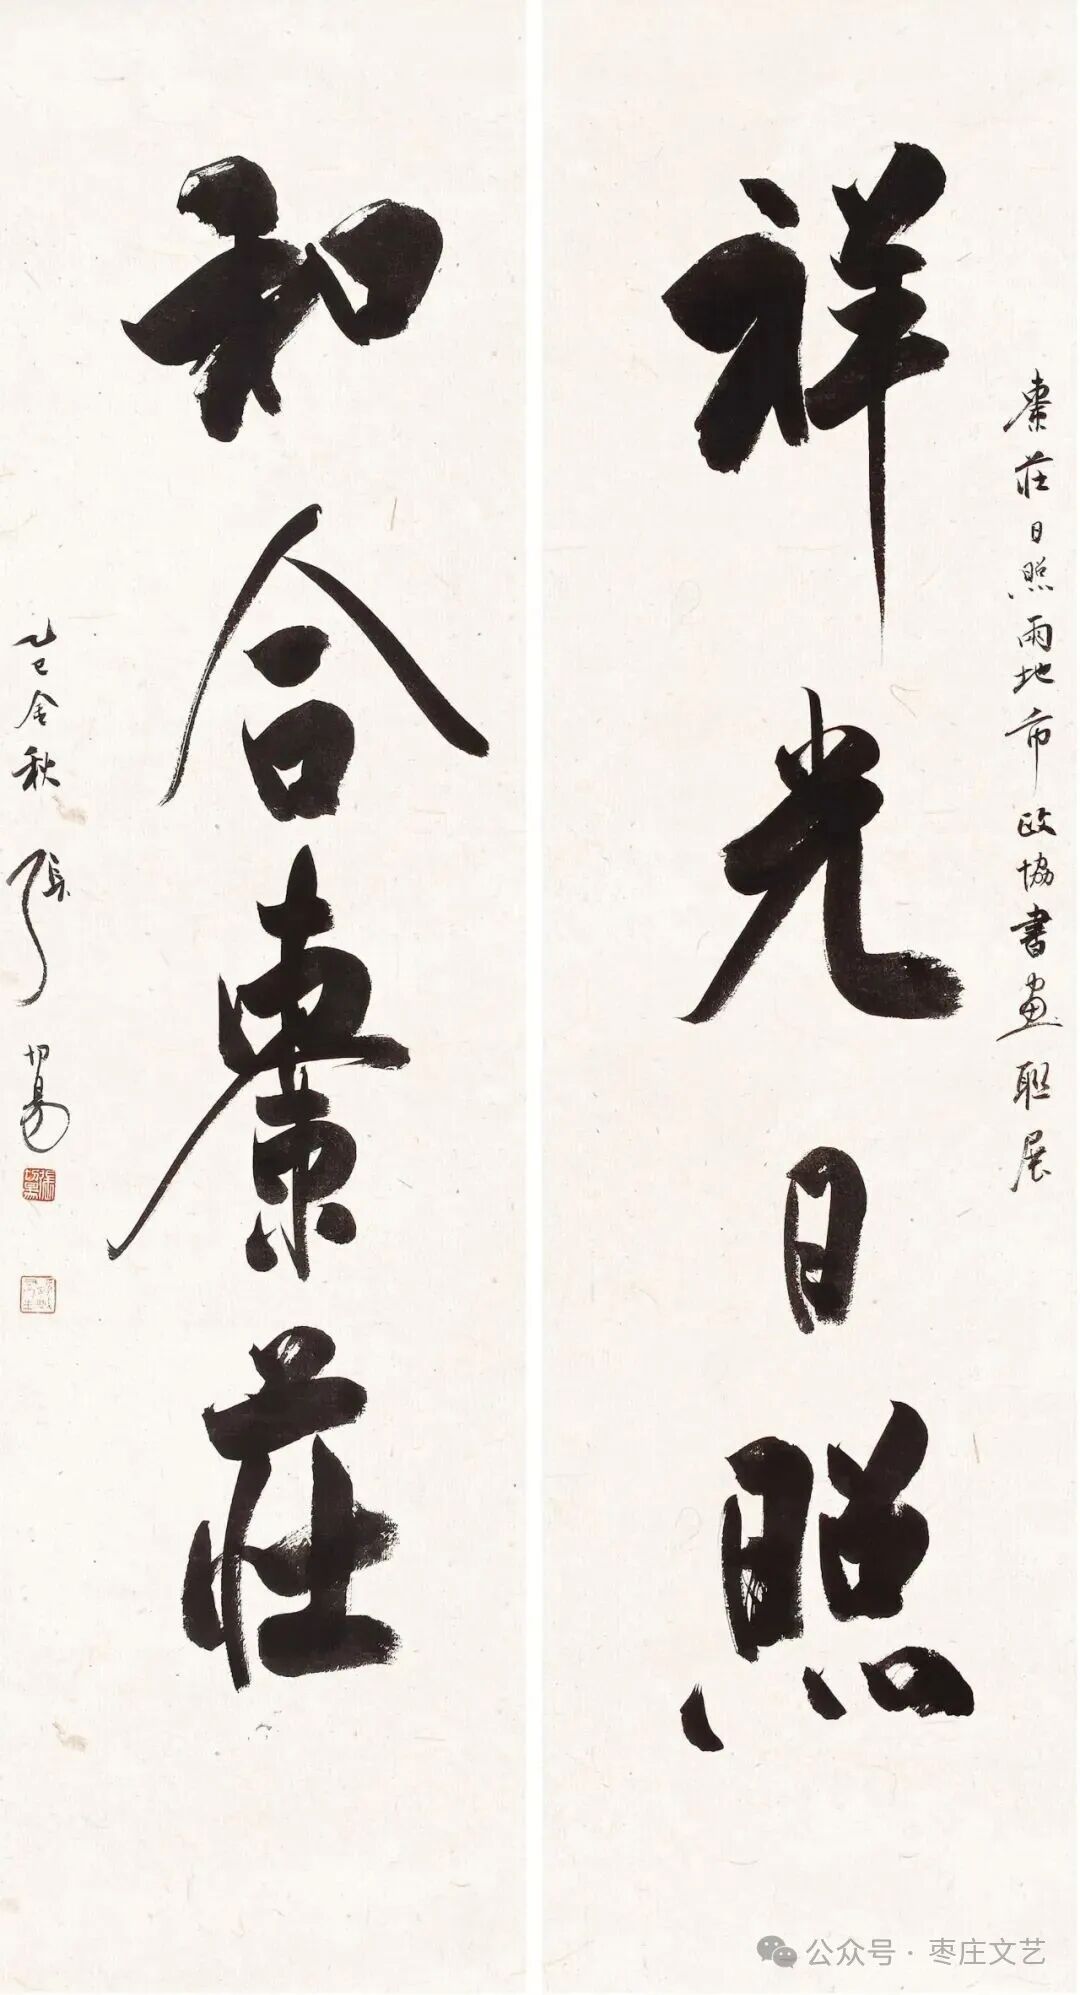 棗莊日照兩地市政協書畫聯展
祥光日照
和合棗莊
乙巳金秋 張切易
公众号·枣庄文艺